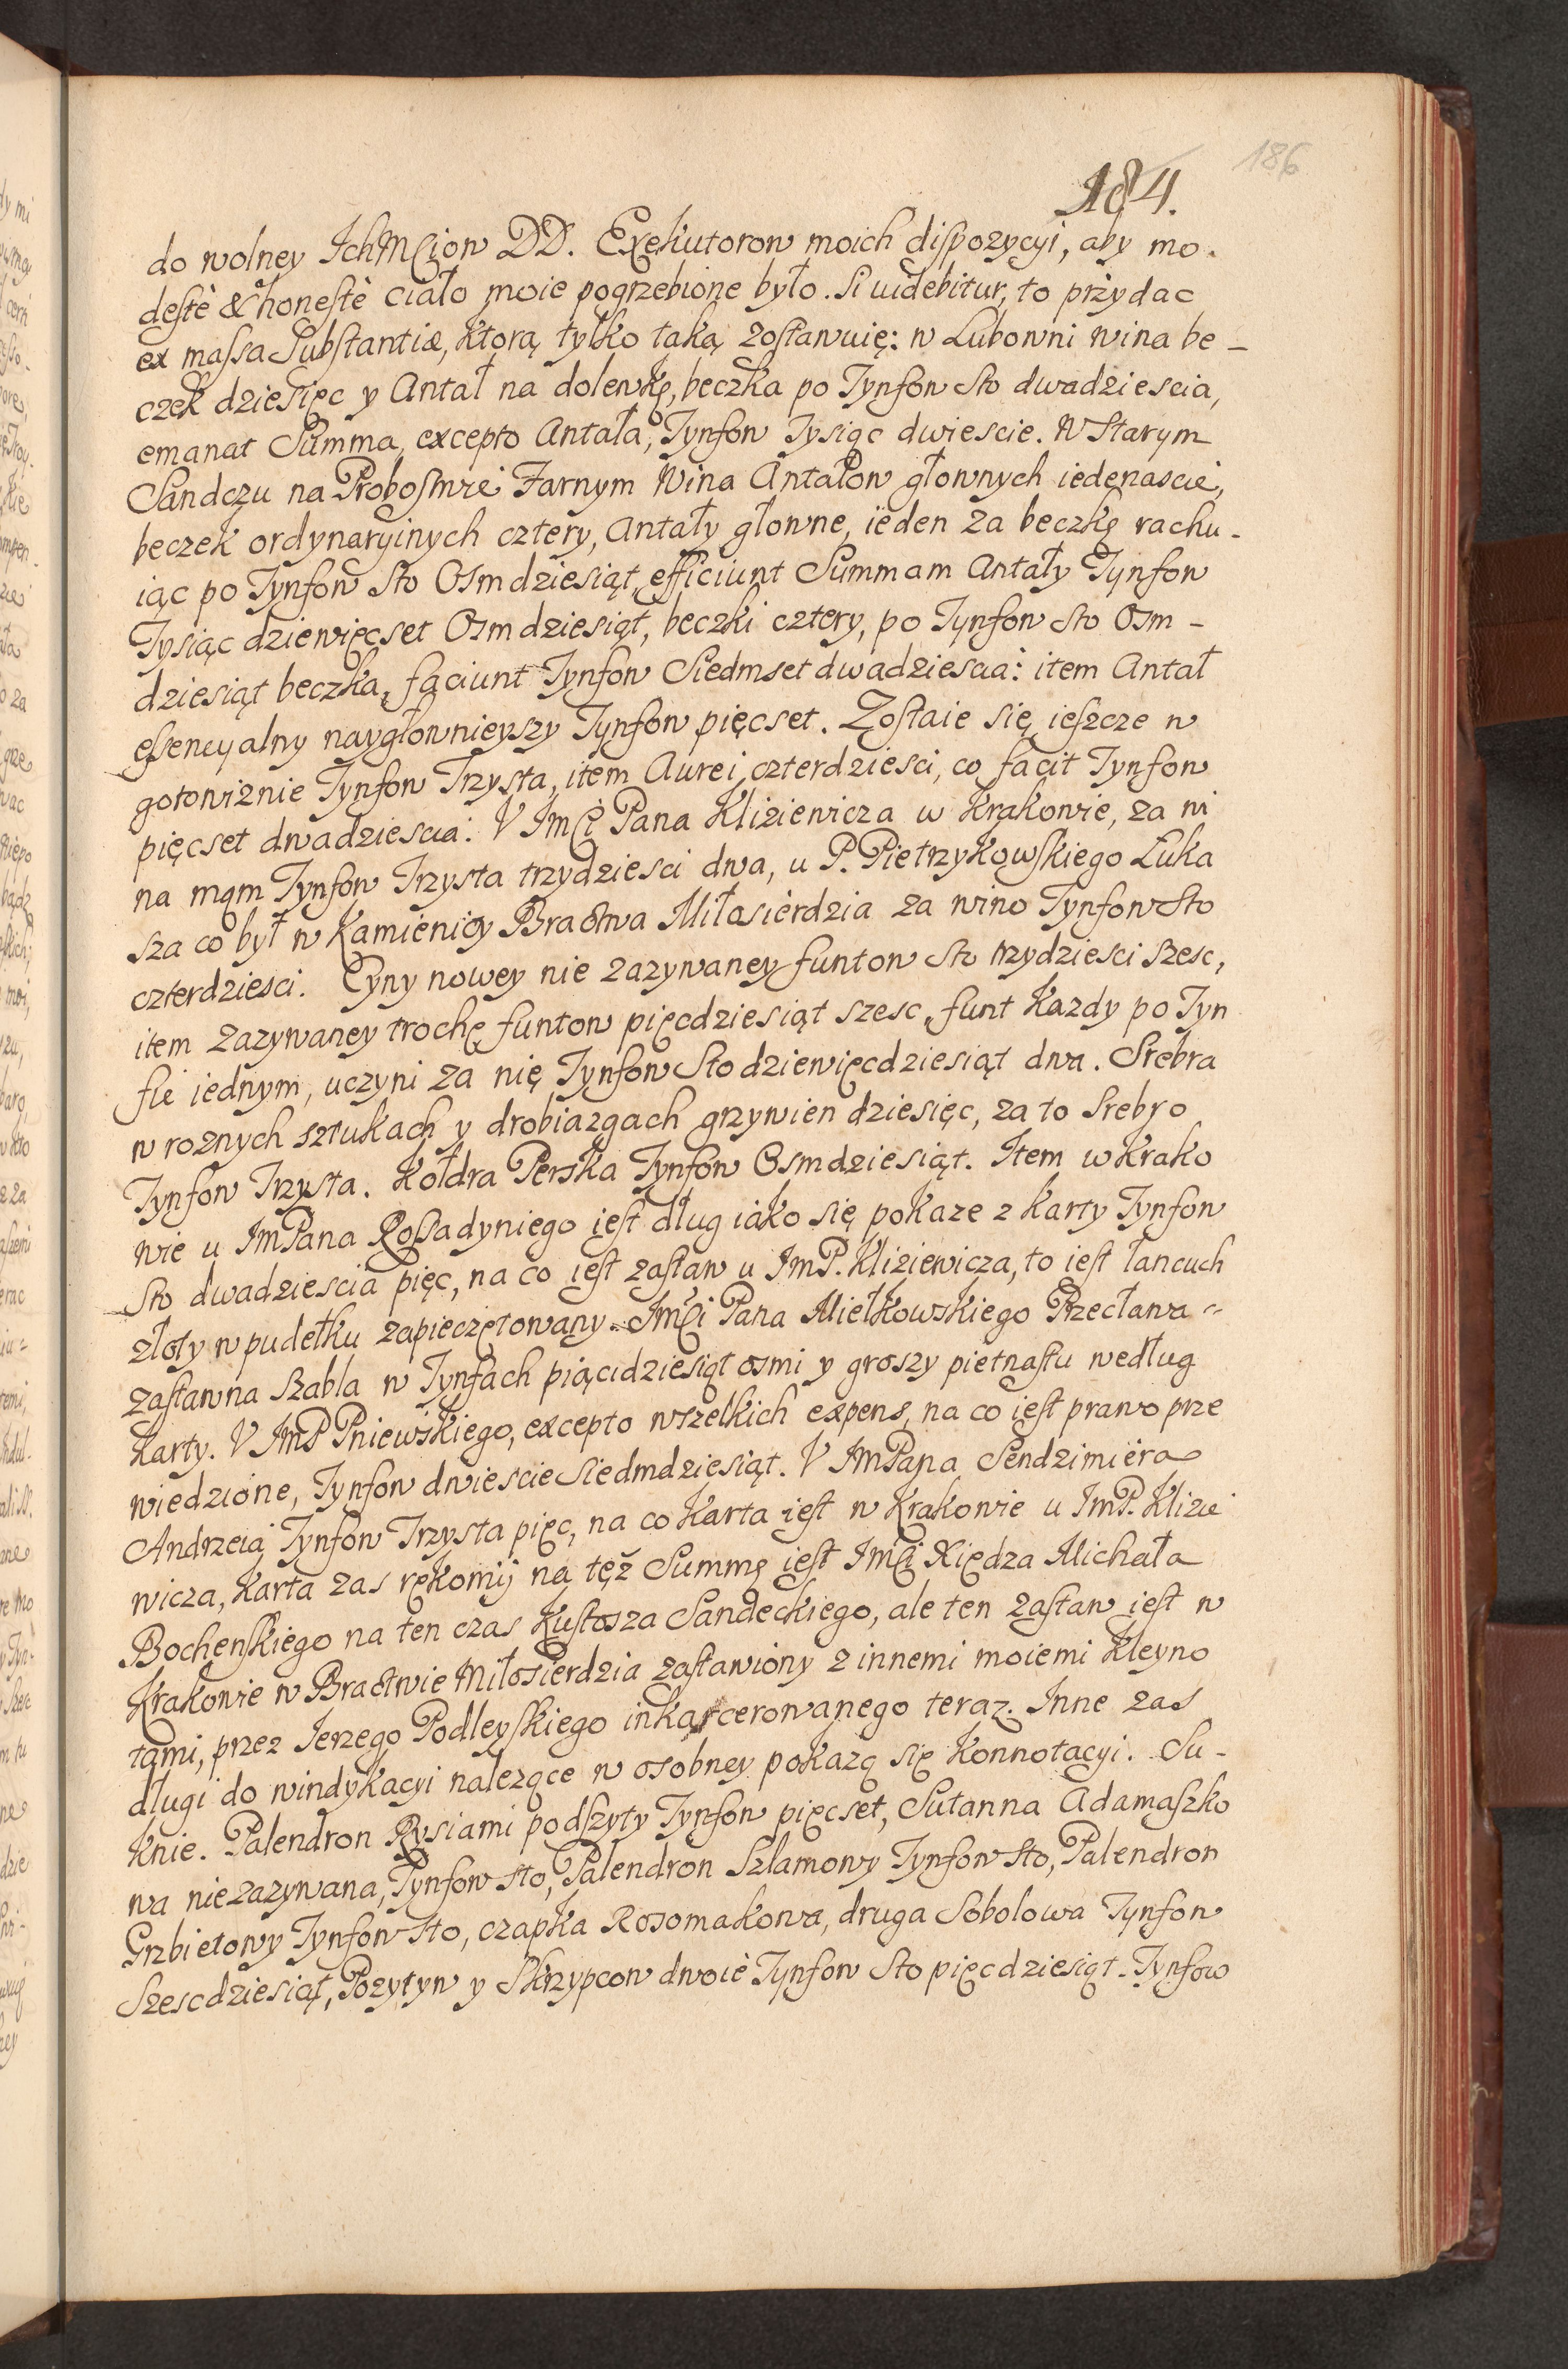 186
184.
do wolney IchMciow DD. Exekutorow moich dispozycyi, aby mo.
destè & honestè ciało moie pogrzebione było. Si uidebitur, to przydac
ex massa Substantiæ, ktorą tylko taką zostawuię: w Lubowni wina be-
czek dziesięc y Antał na dolewkę, beczka po Tynfow sto dwadziescia,
emanat Summa, excepto Antała, Tynfow Tysiąc dwiescie. W Starym
Sandczu na Probostwie Farnym Wina Antałow głownych iedenascie,
beczek ordynaryinych cztery, Antały głowne, ieden za beczkę rachu-
iąc po Tynfow sto Osmdziesiąt, efficiunt Summam Antały Tynfow
Tysiąc dziewięcset Osmdziesiąt, beczki cztery, po Tynfow sto Osm-
dziesiąt beczka, faciunt Tynfow Siedmset dwadziescia: item Antał
essencyalny naygłownieyszy Tynfow pięcset. Zostaie się ieszcze w
gotowiznie Tynfow Trzysta, item Aurei czterdziesci, co facit Tynfow
pięcset dwadziescia. V Imci Pana Kliziewicza w Krakowie, za wi
na mam Tynfow Trzysta trzydziesci dwa, u P. Pietrzykowskiego Łuka
sza co był w Kamienicy Bractwa Miłosierdzia za wino Tynfow sto
czterdziesci. Cyny nowey nie zazywaney funtow sto trzydziesci szesc,
item zazywaney trochę funtow pięcdziesiąt szesc, funt kazdy po Tyn
fie iednym, uczyni za nię Tynfow Sto dziewięcdziesiąt dwa. Srebra
w roznych sztukach y drobiazgach grzywien dziesięc, za to srebro
Tynfow Trzysta. Kołdra Perska Tynfow Osmdziesiąt. Item w Krako
wie u ImPana Rossadyniego iest dług iako się pokaze z karty Tynfow
sto dwadziescia pięc, na co iest zastaw u ImP. Kliziewicza, to iest łancuch
złoty w pudełku zapieczętowany. Imci Pana Miełkowskiego Przecława
zastawna szabla w Tynfach piącidziesiąt osmi y groszy pietnastu według
karty. V ImP Pniewskiego, excepto wszelkich expens, na co iest prawo prze
wiedzione, Tynfow dwiescie Siedmdziesiąt. V ImPana Sendzimiera
Andrzeia Tynfow Trzysta pięc, na co karta iest w Krakowie u ImP. Klizie
wicza, karta zas rękomij na tęż Summę iest Imci Xiędza Michała
Bochenskiego na ten czas Kustosza Sandeckiego, ale ten zastaw iest w
Krakowie w Bractwie Miłosierdzia zastawiony z innemi moiemi kleyno
tami, przez Ierzego Podleyskiego inkarcerowanego teraz. Inne zas
długi do windykacyi nalezące w osobney pokazą się konnotacyi. Su-
knie. Palendron Rysiami podszyty Tynfow pięcset, Sutanna Adamaszko
wa niezazywana, Tynfow sto, Palendron Szlamowy Tynfow sto, Palendron
Grzbietowy Tynfow sto, czapka Rosomakowa, druga Sobolowa Tynfow
Szescdziesiąt, Pozytyw y Skrzypcow dwoie Tynfow sto pięcdziesiąt. Tynfow